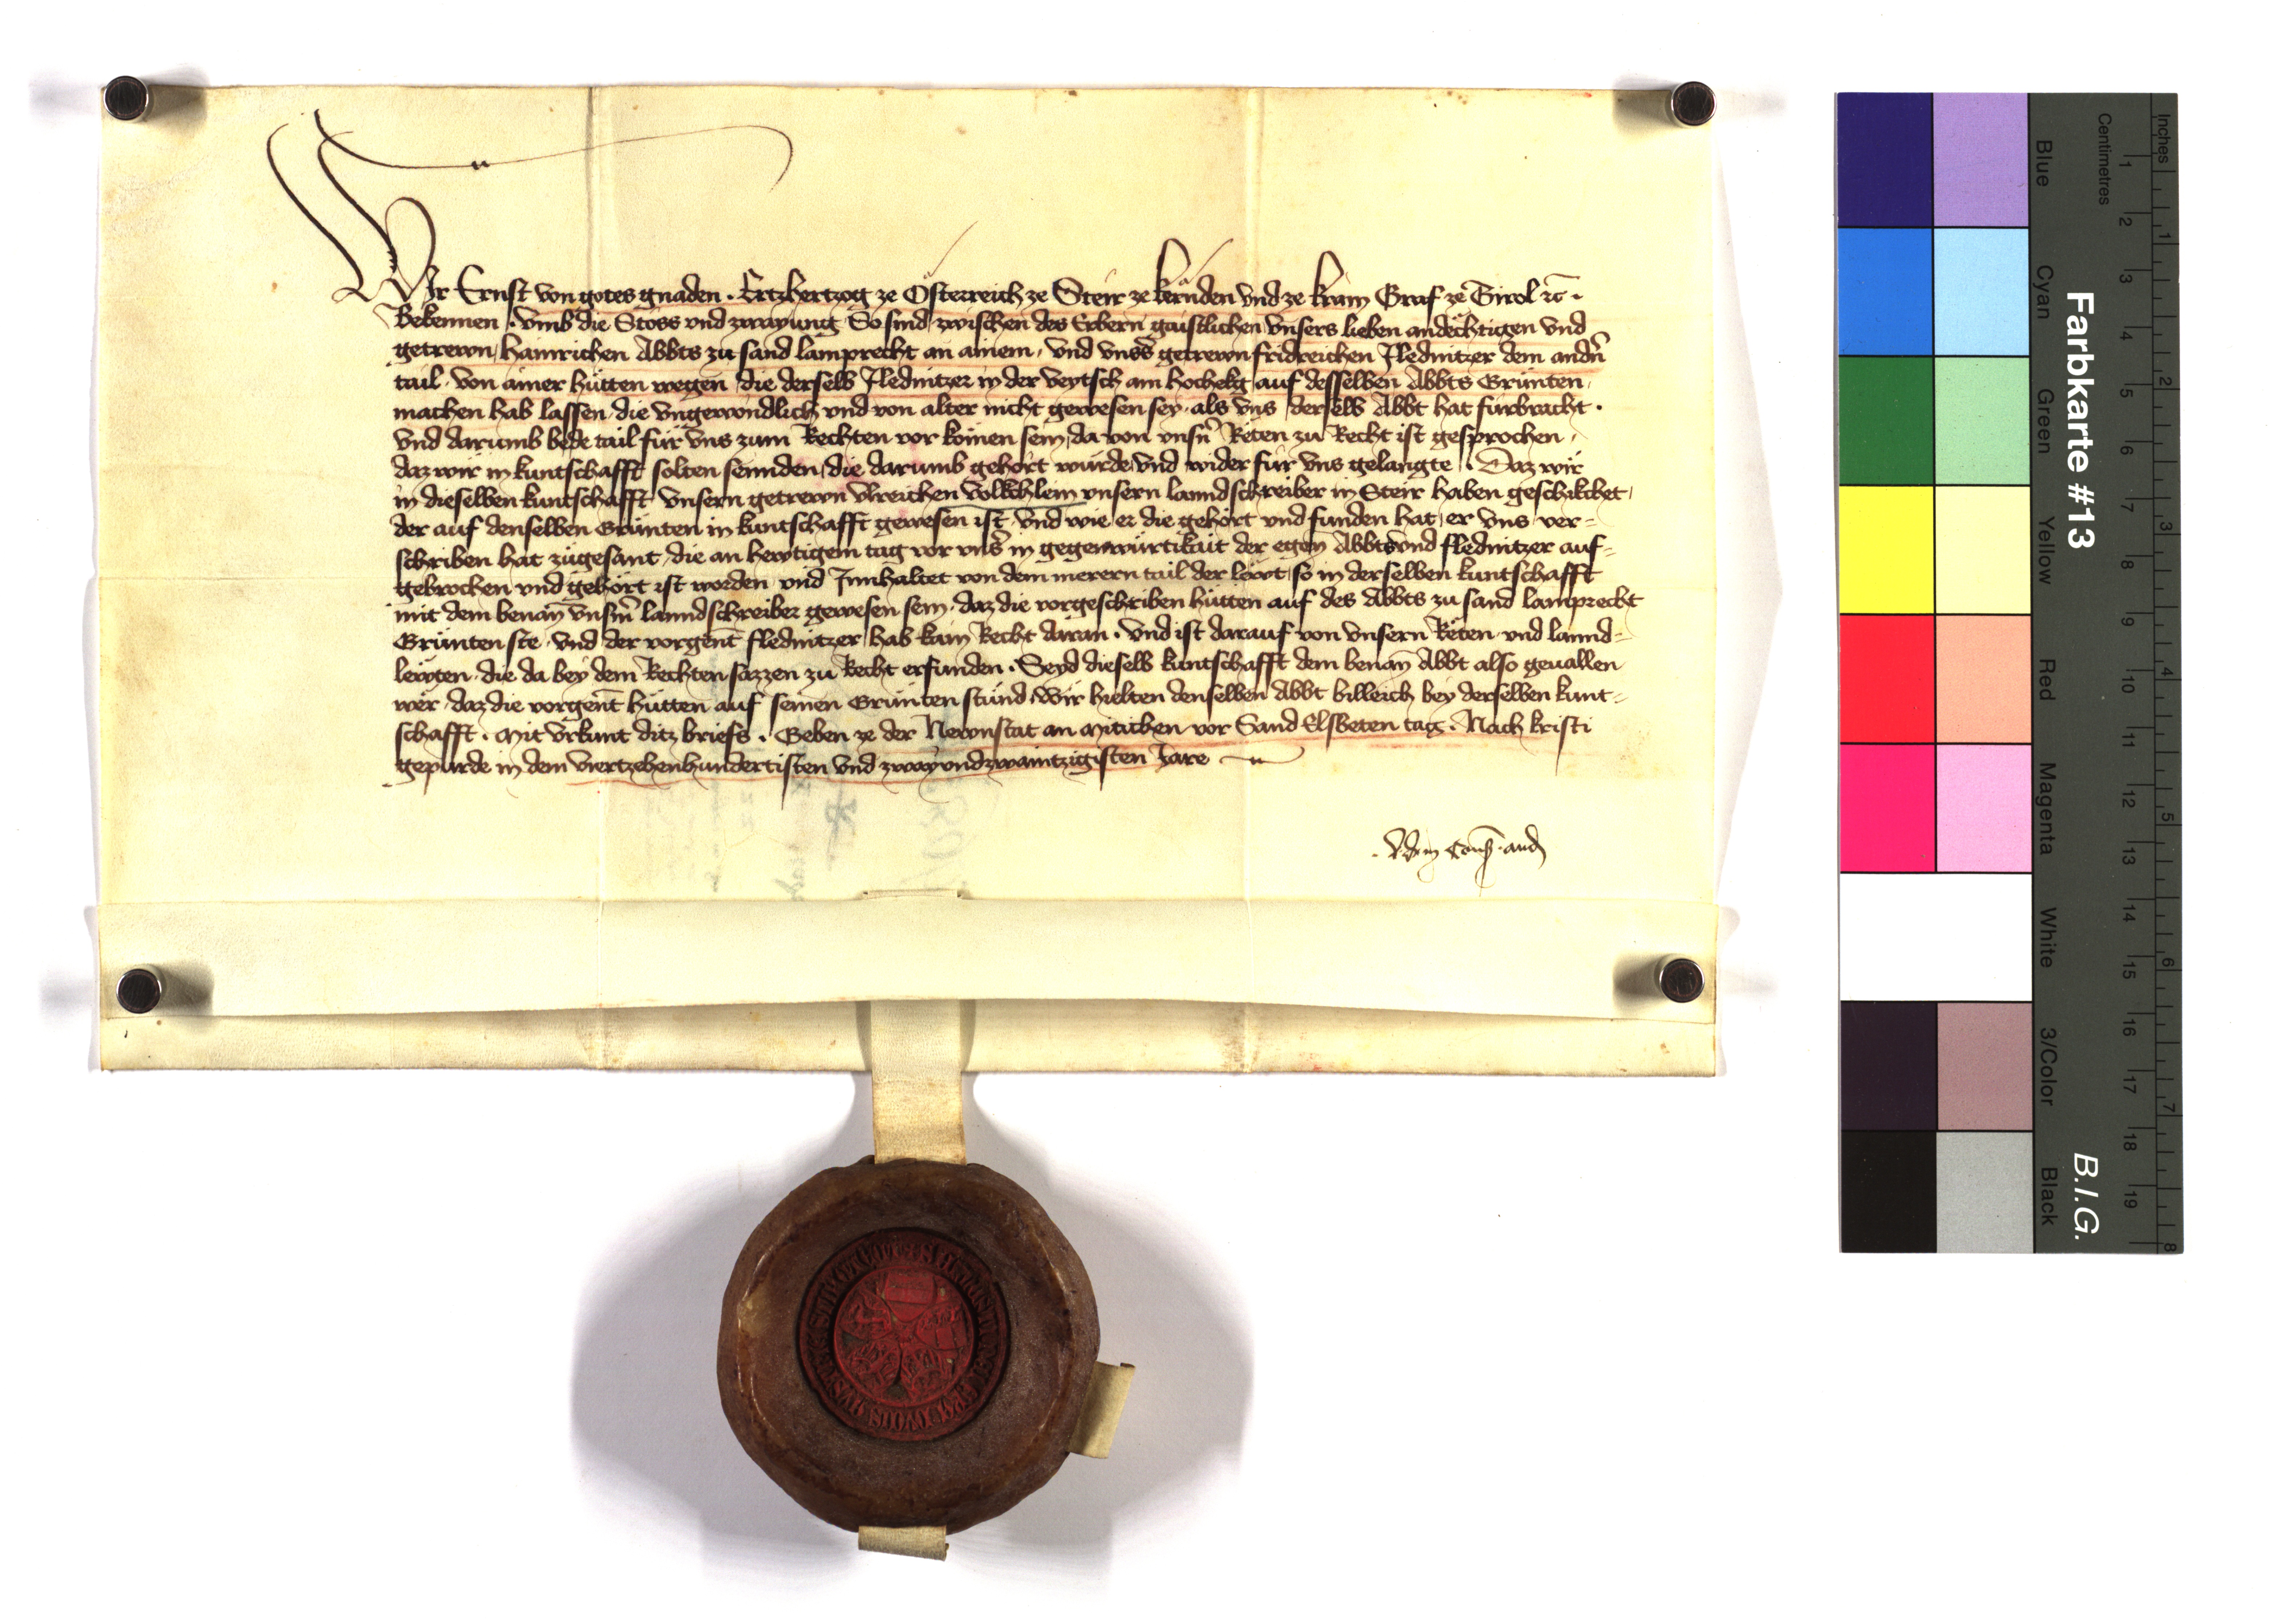 Wir Ernst von gotes gnaden. Ertzhertzog ze Österreich ze Steir ze kernden vnd ze krain Graf ze Tirol zc.
Bekennen. vmb die Stoss vnd zwayung So sind zwischen des Erbern gaistlichen vnsers lieben andechtigen vnd
getrewn, Hainrichen Abbts zu sand lamprecht an ainem, vnd vnss getrewn fridreichen Flednitzer dem andn
tail. von ainer hütten wegen, die derselb Flednitzer in der veytsch am hochekg auf desselben Abbts Grünten,
machen hab lassen, die vngewondlich vnd von alter nicht gewesen sey. als vns derselb Abbt hat fürbracht.
vnd darumb bede tail für vns zum Rechten vor komen sein, da von vnsn Reten zu Recht ist gesprochen,
daz wir in kuntschafft solten sennden, die darumb gehört würde, vnd wider für vns gelangte. Daz wir
in dieselben kuntschafft vnsern getrewn vlreichen volkchlein vnsern lanndschreiber in Steir haben geschikchet,
der auf denselben Grünten in kuntschafft gewesen ist, vnd wie er die gehört vnd funden hat, er vns ver=
schriben hat zugesant, die an hewtigem tag vor vns in gegenwürtikait der egen Abbts vnd flednitzer auf=
gebrochen vnd gehört ist worden vnd Innhaltet von dem merern tail der lewt, so in derselben kuntschafft
mit dem benan vnsm lanndschreiber gewesen sein. daz die vorgeschriben hütten auf des Abbts zu sand lamprecht
Grünten ste. vnd der vorgent flednitzer, hab kain Recht daran. vnd ist darauf von vnsern Reten vnd lannd=
lewten. die da bey dem Rechten sazzen zu Recht erfunden. Seyd dieselb kuntschafft dem benan Abbt also geuallen
wer, daz die vorgent hütten auf seinen Grünten stünd, Wir hielten denselben Abbt billeich bey derselben kunt=
schafft. mit vrkunt ditz briefs. Geben ze der Newnstat an mitichen vor Sand Elsbeten tag. Nach kristi
gepurde in dem viertzehenhundertisten vnd zwayvndzwaintzigisten Jare
Farbkarte #13
B.I.G.
Centimetres
Inches
1 2 3 4 5 6 7 8 9 10 11 12 13 14 15 16 17 18 19
1 2 3 4 5 6 7 8
Blue
Cyan
Green
Yellow
Red
Magenta
White
3/Color
Black